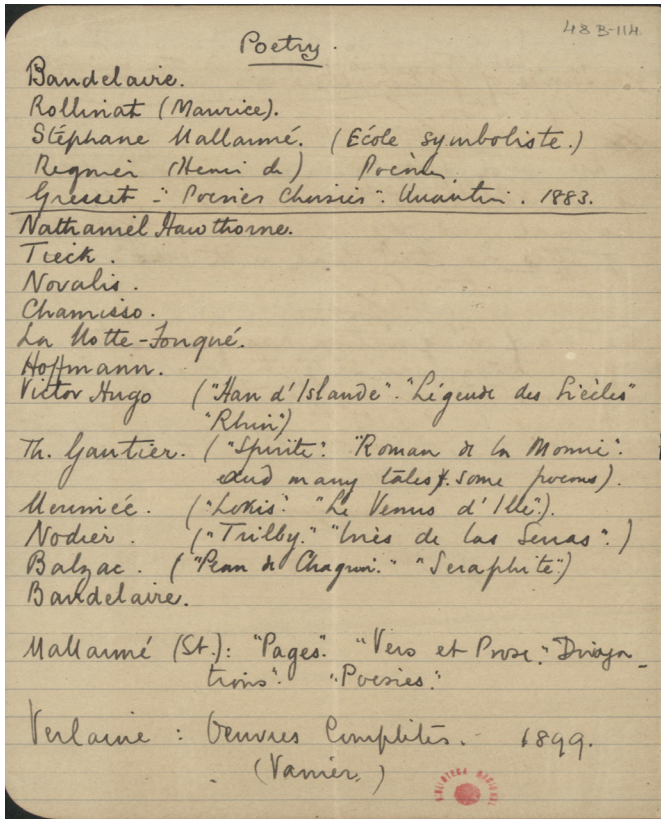 48 B-114.
Poetry.
Baudelaire.
Rollinat (Maurice).
Stéphane Mallarmé. (École symboliste.)
Regnier (Henri de) Poèmes.
Gresset - "Poesies Choisies". Quantin. 1883.
Nathaniel Hawthorne.
Tieck.
Novalis.
Chamisso.
La Motte-Fouqué.
Hoffmann.
Victor Hugo ("Han d'Islande". "Légende des Siècles"
"Rhin")
Th. Gautier. ("Spirite". "Roman de la Momie".
and many tales & some poems).
Merimée. ("Lokis". "Le Venus d'Ille").
Nodier. ("Trilby." "Inès de las Serras".)
Balzac. ("Peau de Chagrin." "Seraphite".)
Baudelaire.
Mallarmé (St.): "Pages". "Vers et Prose." "Divaga-
tions". "Poésies."
Verlaine: Oeuvres Complètes. - 1899.
(Vanier.)
BIBLIOTECA NACIONAL